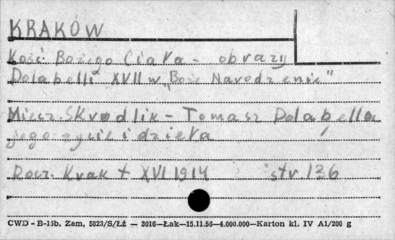 KRAKÓW
Kość. Bożego Ciała - obrazy
Dolabelli XVII w. „Boże Narodzenie"
Miecz. Skrudlik - Tomasz Dolabella
jego życie i dzieła
Rocz. Krak t XVI 1914 str 136
CWD - B-15b. Zam, 5823/S/Łź — 3016—Łak—15.11.56—4.000.000—Karton kl. IV A1/200 g